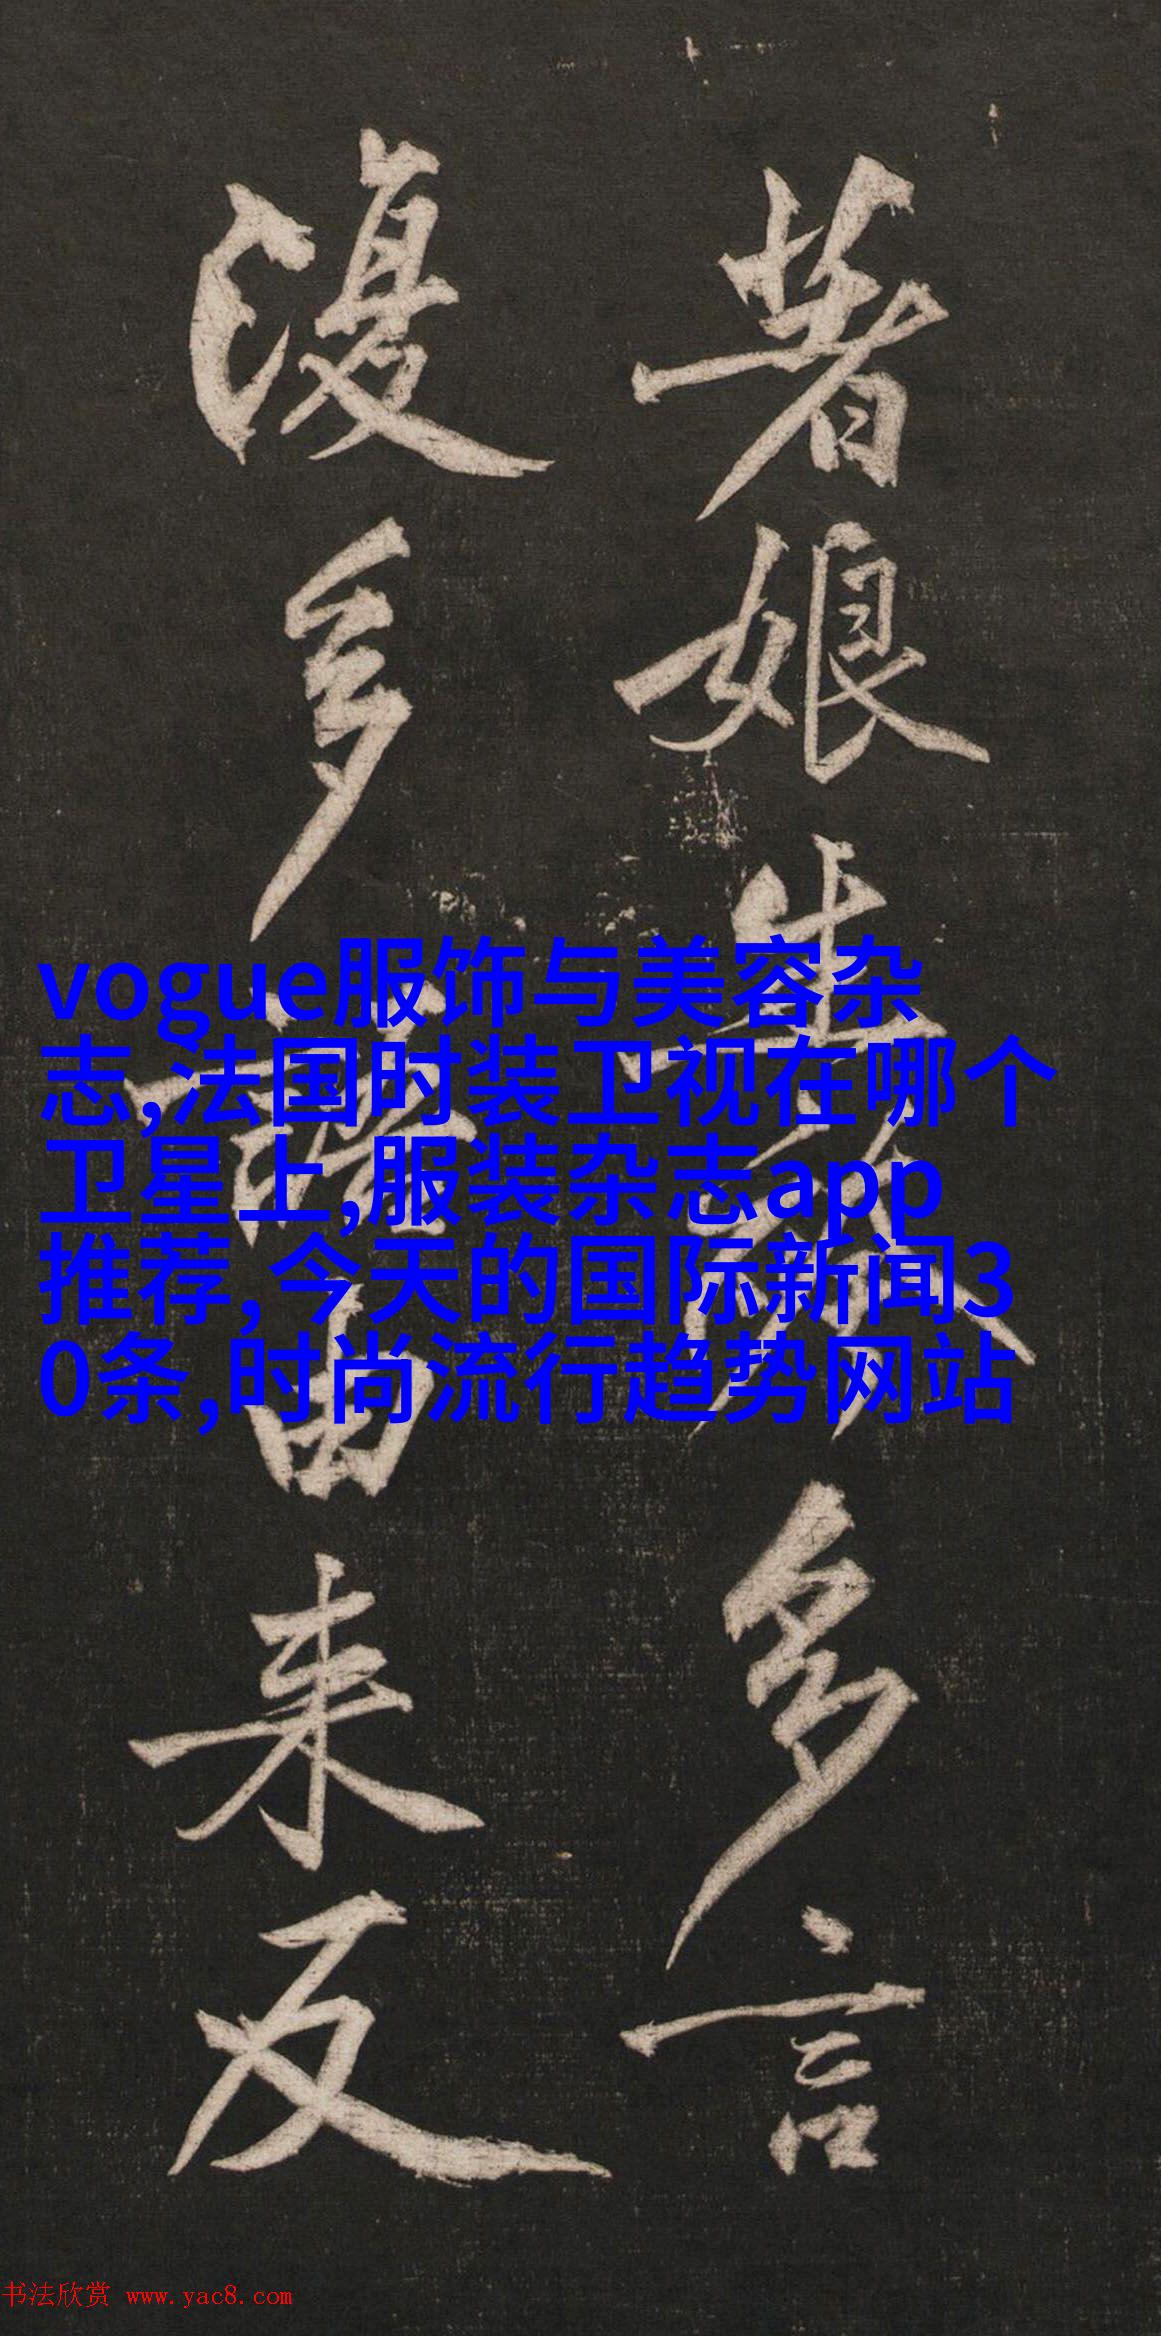 著娘生多言
復多語由来反
vogue服饰与美容杂
志,法国时装卫视在哪个
卫星上,服装杂志app
推荐,今天的国际新闻3
0条,时尚流行趋势网站
书法欣赏 www.yac8.com